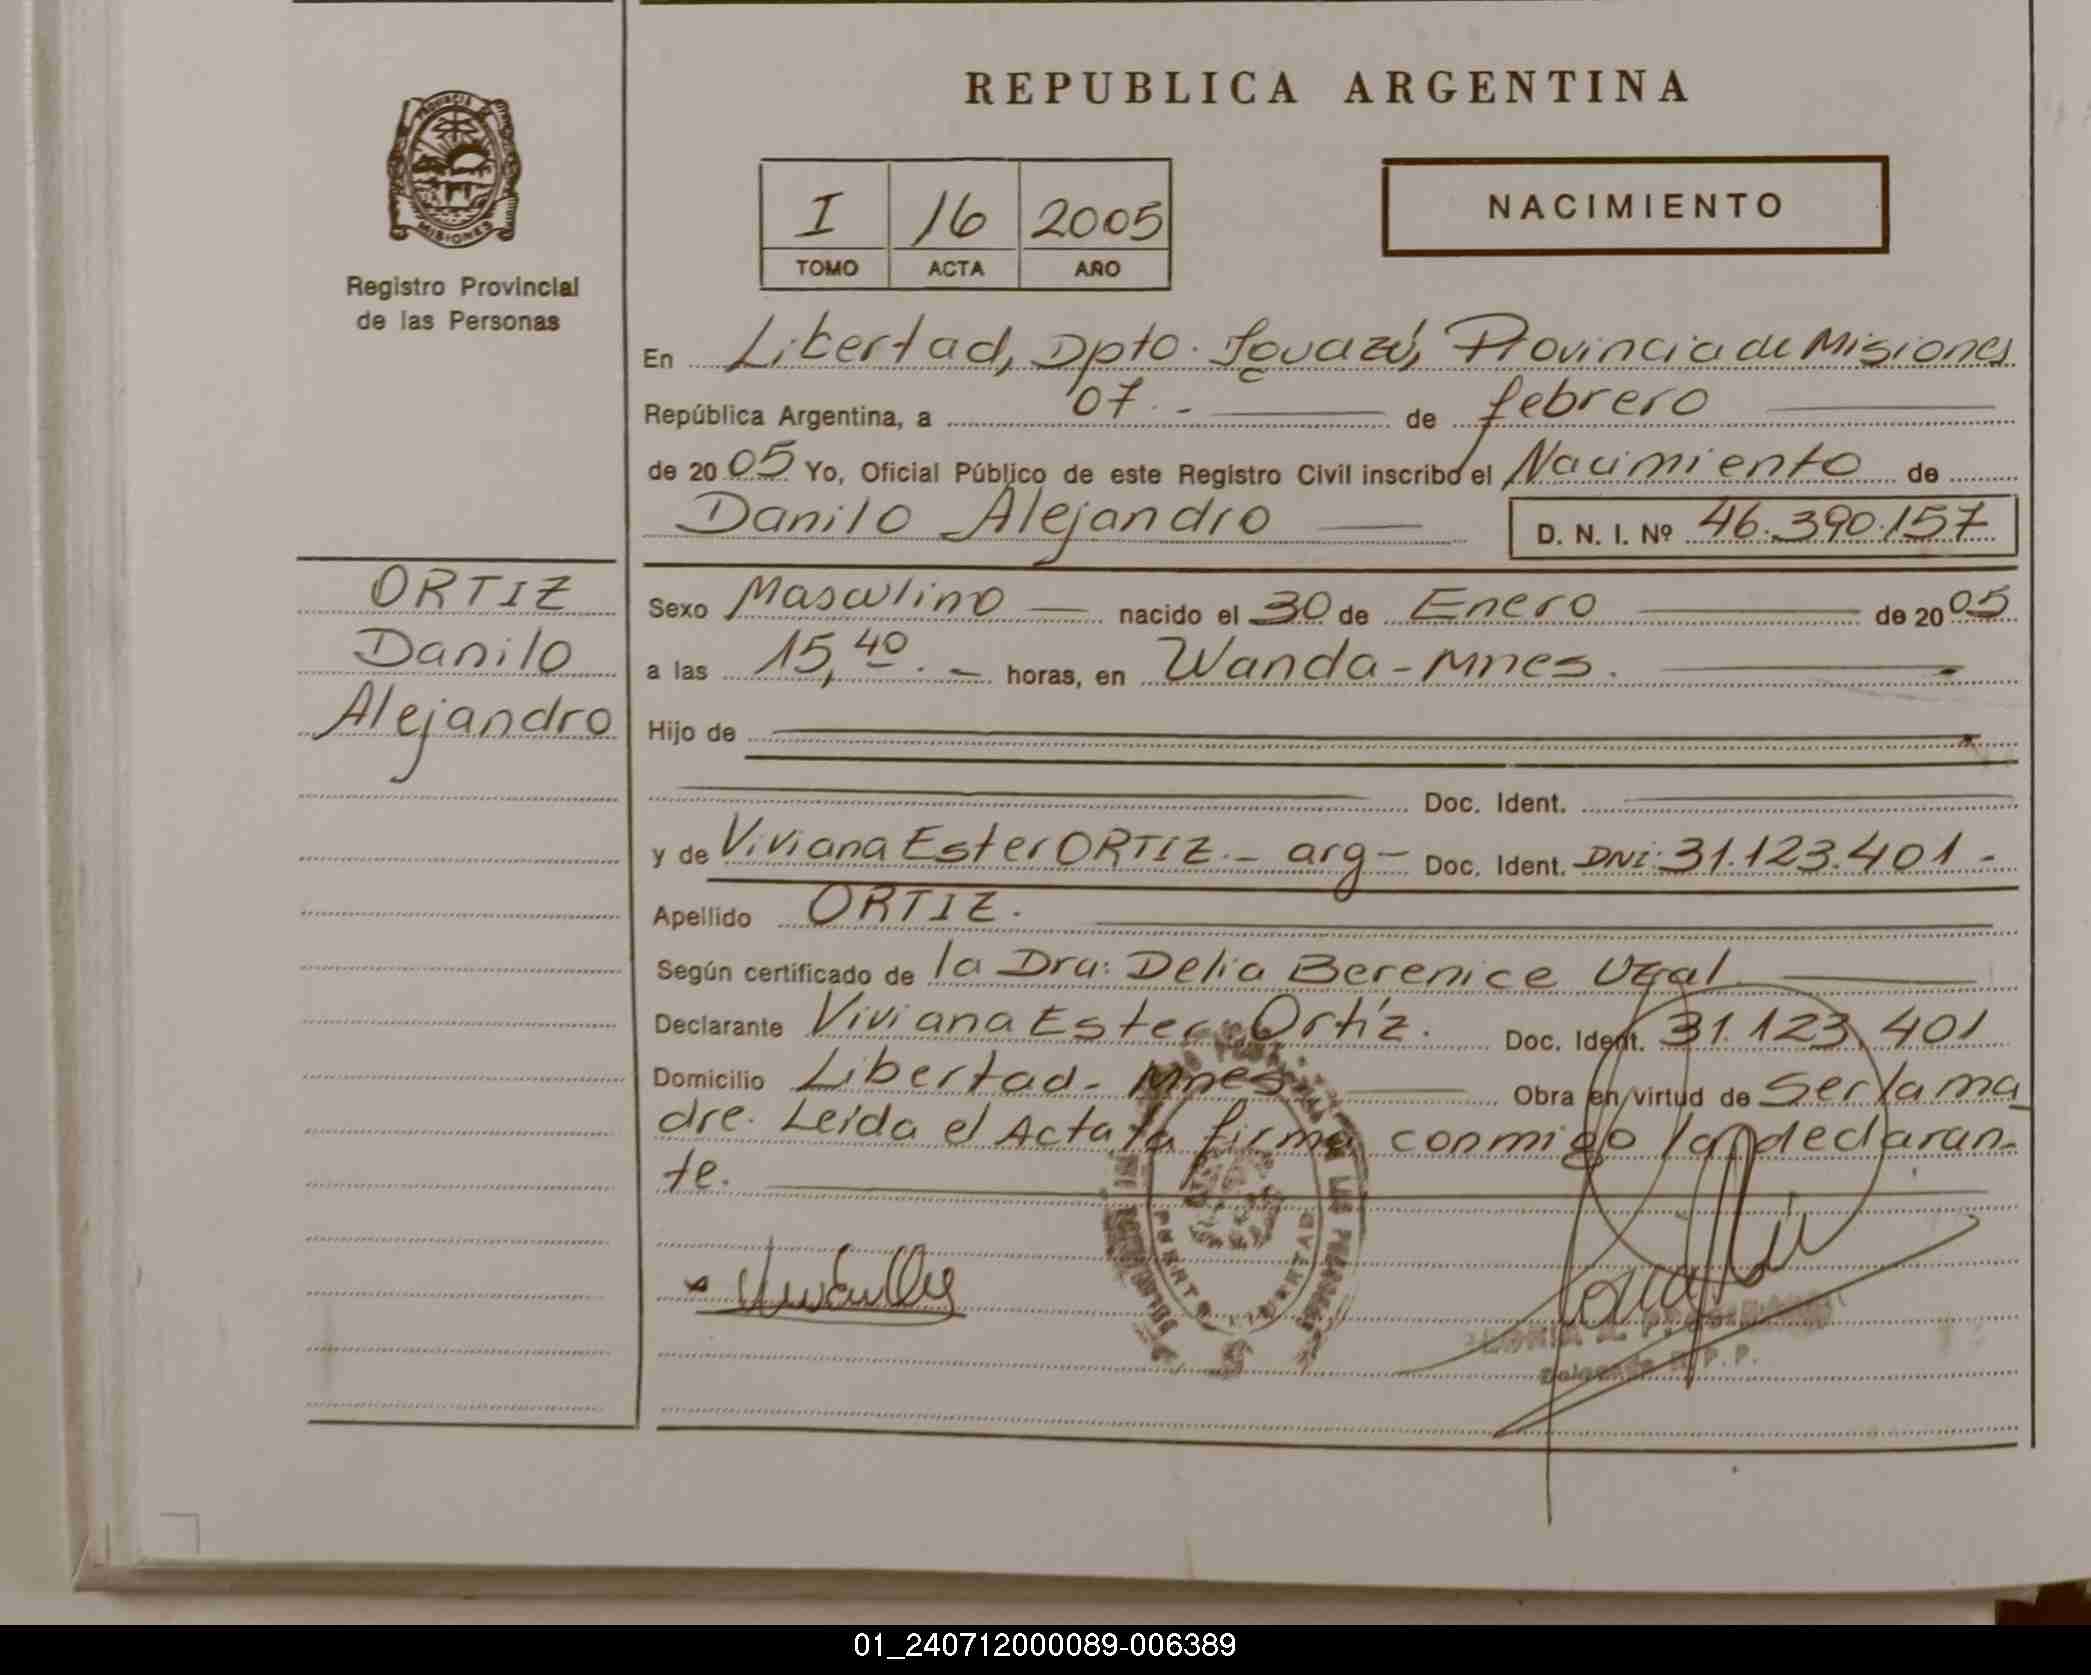 PROVINCIA
MISIONES
Registro Provincial
de las Personas
ORTIZ
Danilo
Alejandro
REPUBLICA ARGENTINA
I 16 2005
TOMO ACTA AÑO
NACIMIENTO
En Libertad, Dpto. Iguazú, Provincia de Misiones
República Argentina, a 07.- de febrero
de 2005 Yo, Oficial Público de este Registro Civil inscribo el Nacimiento de
Danilo Alejandro D. N. I. Nº 46.390.157
Sexo Masculino nacido el 30 de Enero de 2005
a las 15,40.- horas, en Wanda-Mnes.
Hijo de
Doc. Ident.
y de Viviana Ester ORTIZ.- arg- Doc. Ident. DNI: 31.123.401-
Apellido ORTIZ.
Según certificado de la Dra: Delia Berenice
Declarante Viviana Ester Ortíz. Doc. Ident. 31.123.401
Domicilio Libertad- Mnes Obra en virtud de Ser la ma
dre. Leída el Acta la firma conmigo la declaran-
te.
PUERTO LIBERTAD
DE LAS PERSONAS
Delegada R.P.P.
01_240712000089-006389